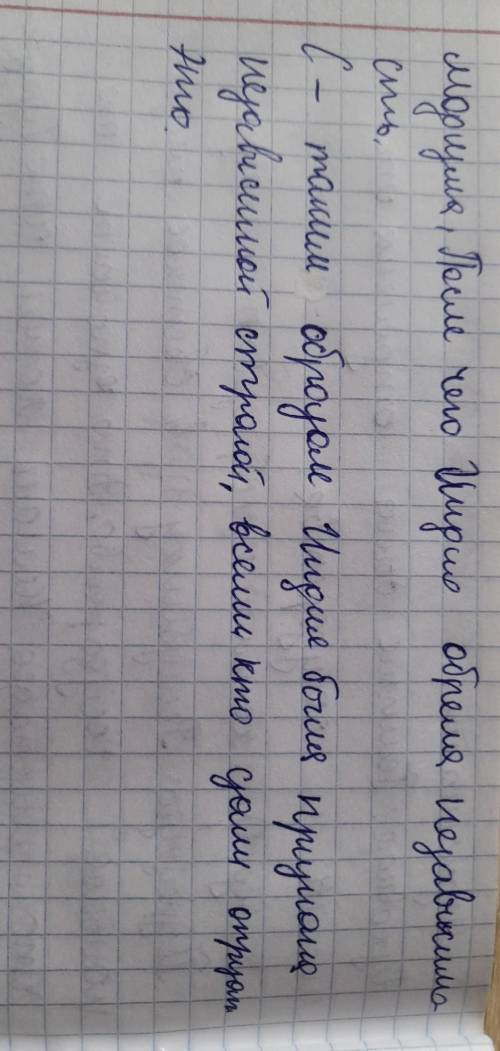 Модиума, После чего Индию обрела независимо
сть.
С - таким образом Индия была признана
независимой страной, всеми, кто
Анию.